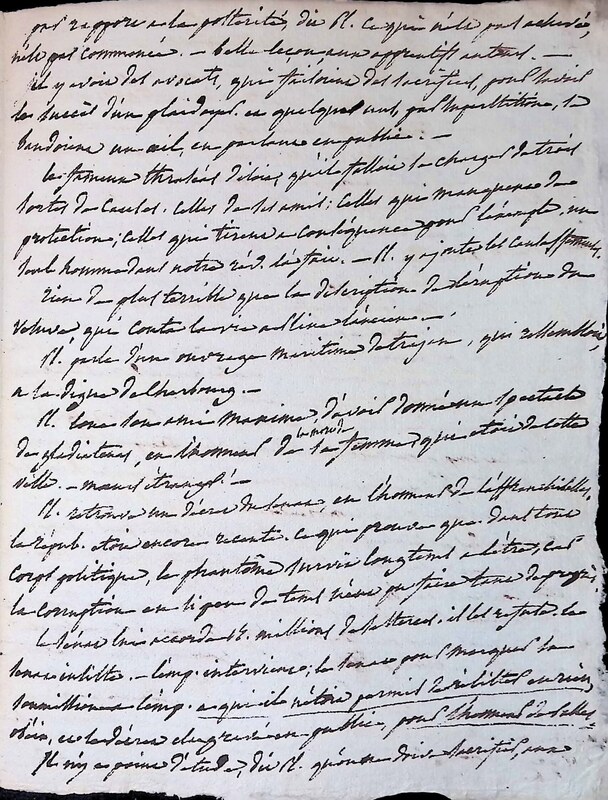 pas rapport a la postérité, dit Pl. ce qui n'est pas achevé,
n'est pas commencé. — belle leçon aux apprentifs auteurs. —
il y avoit des avocats, qui faisoient des sacrifices, pour savoir
le succès d'un plaidoyer. et quelques uns, par superstition, se
bandoient un œil, en parlant en public. —
le fameux thraséas disoit, qu'il falloit se charger de trois
sortes de causes. celles de ses amis; celles qui manquent de
protection; celles qui tirent a conséquence pour l'exemple, un
seul homme dans notre rév. l'a fait. — Pl. y ajoute les causes fameuses.
rien de plus terrible que la description de l'éruption du
vésuve qui couta la vie a Pline l'ancien. —
Pl. parle d'un ouvrage maritime de trajan, qui ressembloit,
a la digue de Cherbourg. —
Pl. loue son ami maxime, d'avoir donné un spectacle
de gladiateurs, en l'honneur de la mort de sa femme, qui étoit de cette
ville. — mœurs étranges! —
Pl. retrouve un décret du sénat en l'honneur de l'affranchi Pallas,
la répub. étoit encore récente. ce qui prouve que dans tout
corps politique, le phantôme survit longtems a l'être, car
la corruption en si peu de tems n'eut pu faire tant de progrès.
le sénat lui accorde 15. millions de sesterces. il les refuse. le
sénat insiste. — l'emp. intervient; le sénat pour marquer sa
soumission a l'emp. a qui il n'étoit permis de résister en rien,
obéit, et le décret est gravé en public, pour l'honneur de Pallas.
Il n'y a point d'étude, dit Pl. qu'on ne doive sacrifier, aux